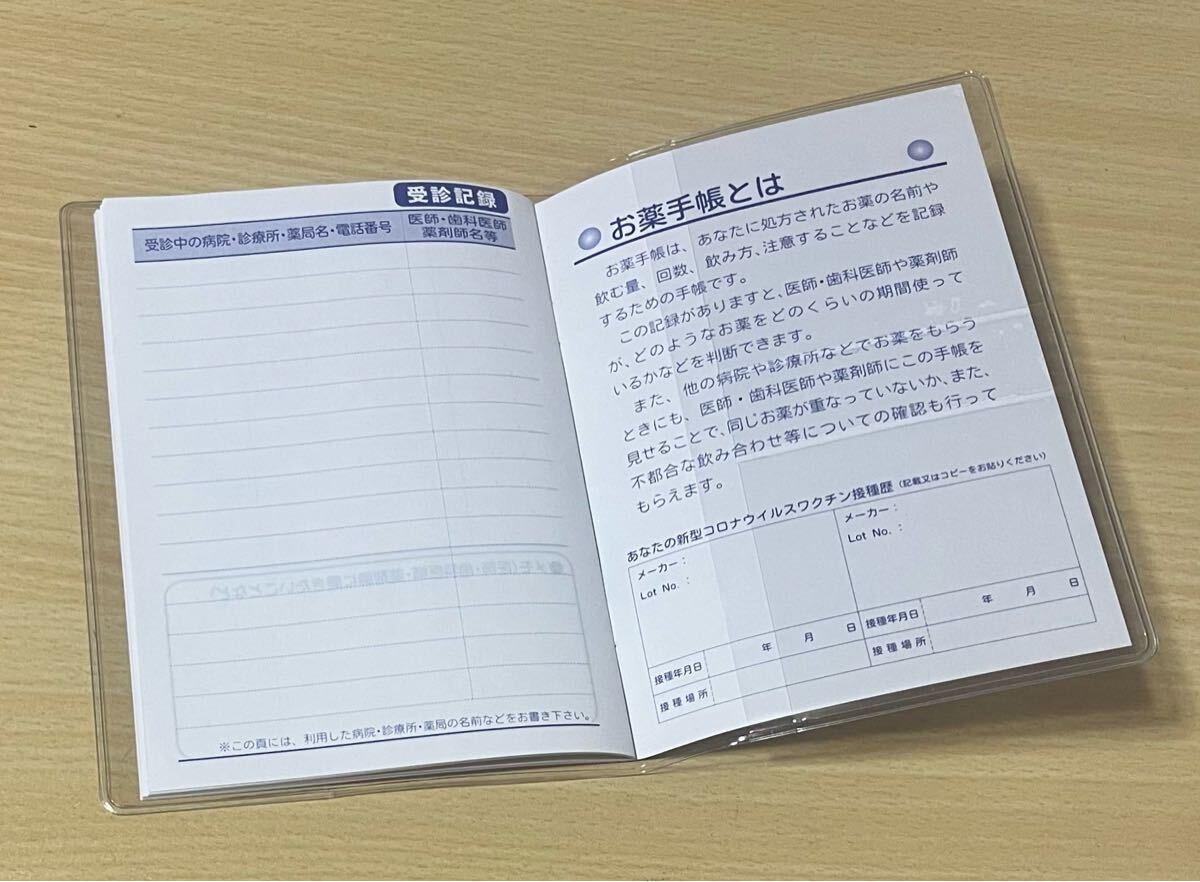 受診記録
受診中の病院・診療所・薬局名・電話番号
医師・歯科医師
薬剤師名等
●メモ(医師・歯科医師・薬剤師に聞きたいことなど)
※この頁には、利用した病院・診療所・薬局の名前などをお書き下さい。
お薬手帳とは
お薬手帳は、あなたに処方されたお薬の名前や
飲む量、回数、飲み方、注意することなどを記録
するための手帳です。
この記録がありますと、医師・歯科医師や薬剤師
が、どのようなお薬をどのくらいの期間使って
いるかなどを判断できます。
また、他の病院や診療所などでお薬をもらう
ときにも、医師・歯科医師や薬剤師にこの手帳を
見せることで、同じお薬が重なっていないか、また、
不都合な飲み合わせ等についての確認も行って
もらえます。
あなたの新型コロナウイルスワクチン接種歴(記載又はコピーをお貼りください)
メーカー:
Lot No. :
接種年月日 年 月 日
接種場所
メーカー:
Lot No. :
接種年月日 年 月 日
接種場所